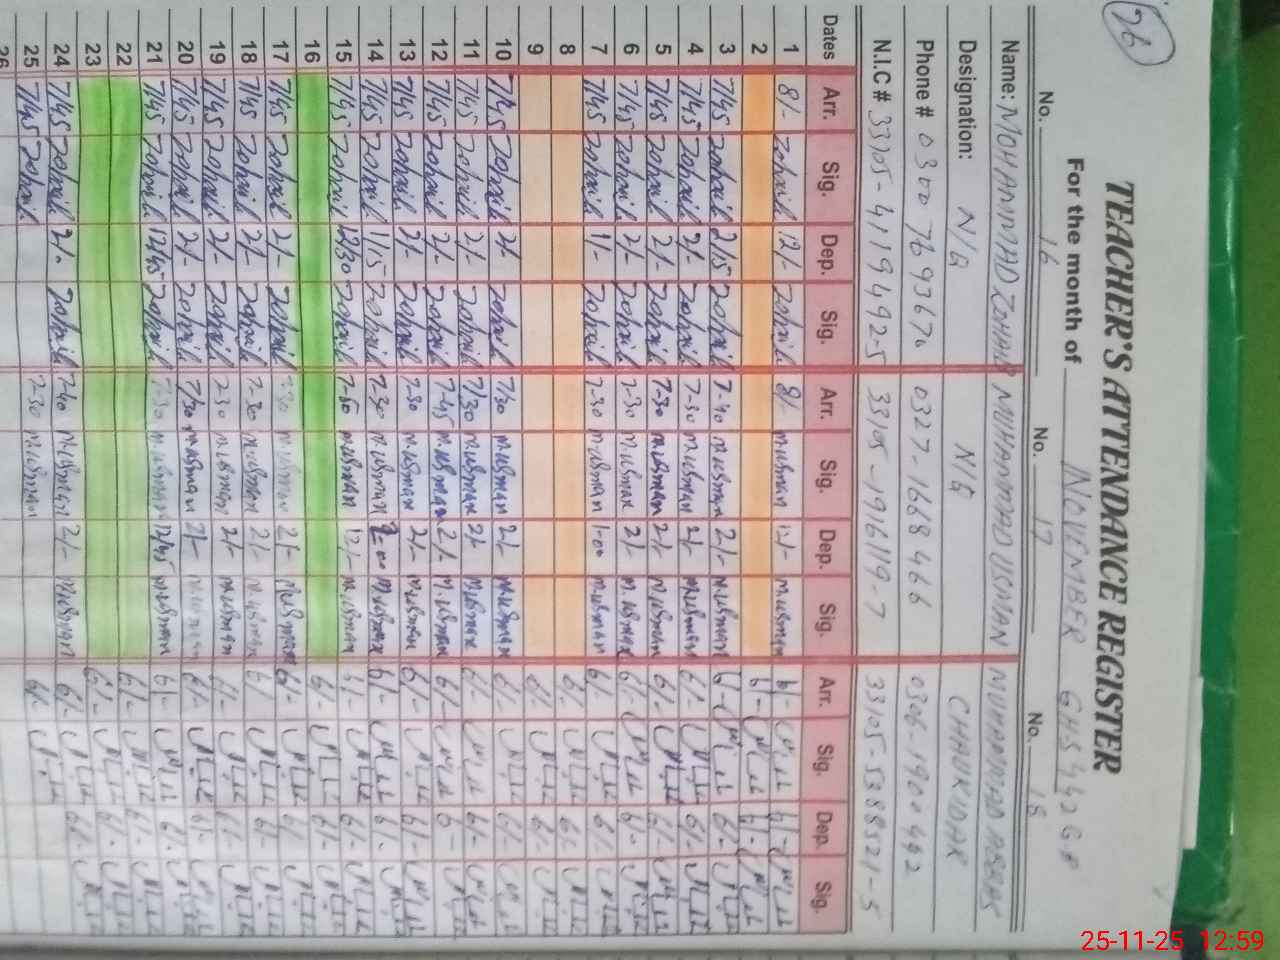 26
TEACHER'S ATTENDANCE REGISTER
For the month of NOVEMBER GHS 442 G.B
No. 16 No. 17 No. 18
Name: MOHAMMAD ZOHAIB MUHAMMAD USMAN MUHAMMAD ABBAS
Designation: N/Q N/Q CHAUKIDAR
Phone # 0300 7693670 0327-1668466 0306-1900442
N.I.C # 33105-4119492-5 33105-1916119-7 33105-5388521-5
Dates Arr. Sig. Dep. Sig. Arr. Sig. Dep. Sig. Arr. Sig. Dep. Sig.
1 8/- Zohaib 12/- Zohaib 8/- M.usman 12/- M.usman 6/- 6/-
2 6/- 6/-
3 7/45 Zohaib 2/15 Zohaib 7-40 M.usman 2/- M.usman 6/- 6/-
4 7/45 Zohaib 2/- Zohaib 7-30 M.usman 2/- M.usman 6/- 6/-
5 7/45 Zohaib 2/- Zohaib 7-30 M.usman 2/- M.usman 6/- 6/-
6 7/45 Zohaib 2/- Zohaib 7-30 M.usman 2/- M.usman 6/- 6-
7 7/45 Zohaib 1/- Zohaib 7-30 M.usman 1-00 M.usman 6/- 6/-
8 6/- 6-
9 6/- 6/-
10 7/45 Zohaib 2/- Zohaib 7/30 M.usman 2/- M.usman 6/- 6/-
11 7/45 Zohaib 2/- Zohaib 7/30 M.usman 2/- M.usman 6/- 6/-
12 7/45 Zohaib 2/- Zohaib 7-45 M.usman 2/- M.usman 6/- 6-
13 7/45 Zohaib 2/- Zohaib 7-30 M.usman 2/- M.usman 6/- 6/-
14 7/45 Zohaib 1/15 Zohaib 7-30 M.usman M.usman 6/- 6-
15 7/45 Zohaib 12/30 Zohaib 7-50 M.usman 12/- M.usman 6/- 6/-
16 6/- 6/-
17 7/45 Zohaib 2/- Zohaib 7-30 M.usman 2/- M.usman 6/- 6/-
18 7/45 Zohaib 2/- Zohaib 7-30 M.usman 2/- M.usman 6/- 6/-
19 7/45 Zohaib 2/- Zohaib 7-30 M.usman 2/- M.usman 6/- 6/-
20 7/45 Zohaib 2/- Zohaib 7/30 M.usman 2/- M.usman 6/- 6/-
21 7/45 Zohaib 12/45 Zohaib 7-30 M.usman 12/45 M.usman 6/- 6/-
22 6/- 6/-
23 6/- 6/-
24 7/45 Zohaib 2/- Zohaib 7-40 M.usman 2/- M.usman 6/- 6/-
25 7/45 Zohaib 7-30 M.usman 6/-
26
25-11-25 12:59